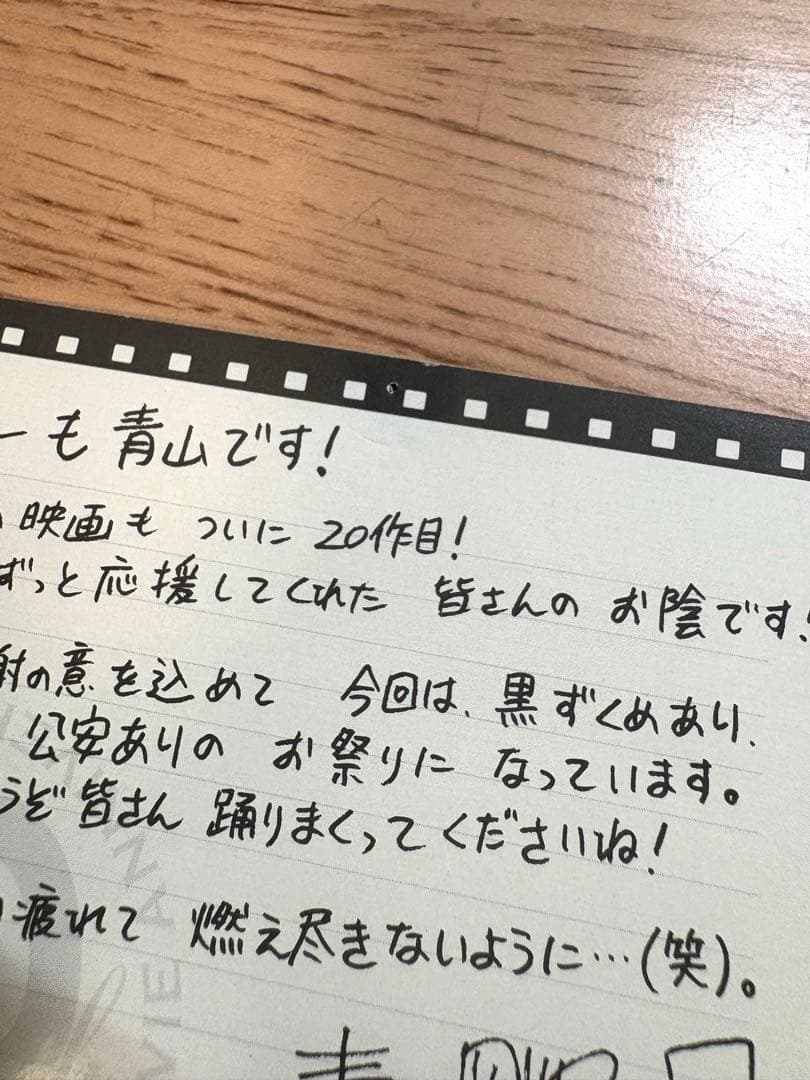 ーも青山です！
映画も ついに 20作目！
ずっと応援してくれた 皆さんの お陰です！
射の意を込めて 今回は、黒ずくめあり、
公安ありの お祭りに なっています。
うぞ皆さん 踊りまくってくださいね！
疲れて 燃え尽きないように…(笑)。
青 剛
VIE AN